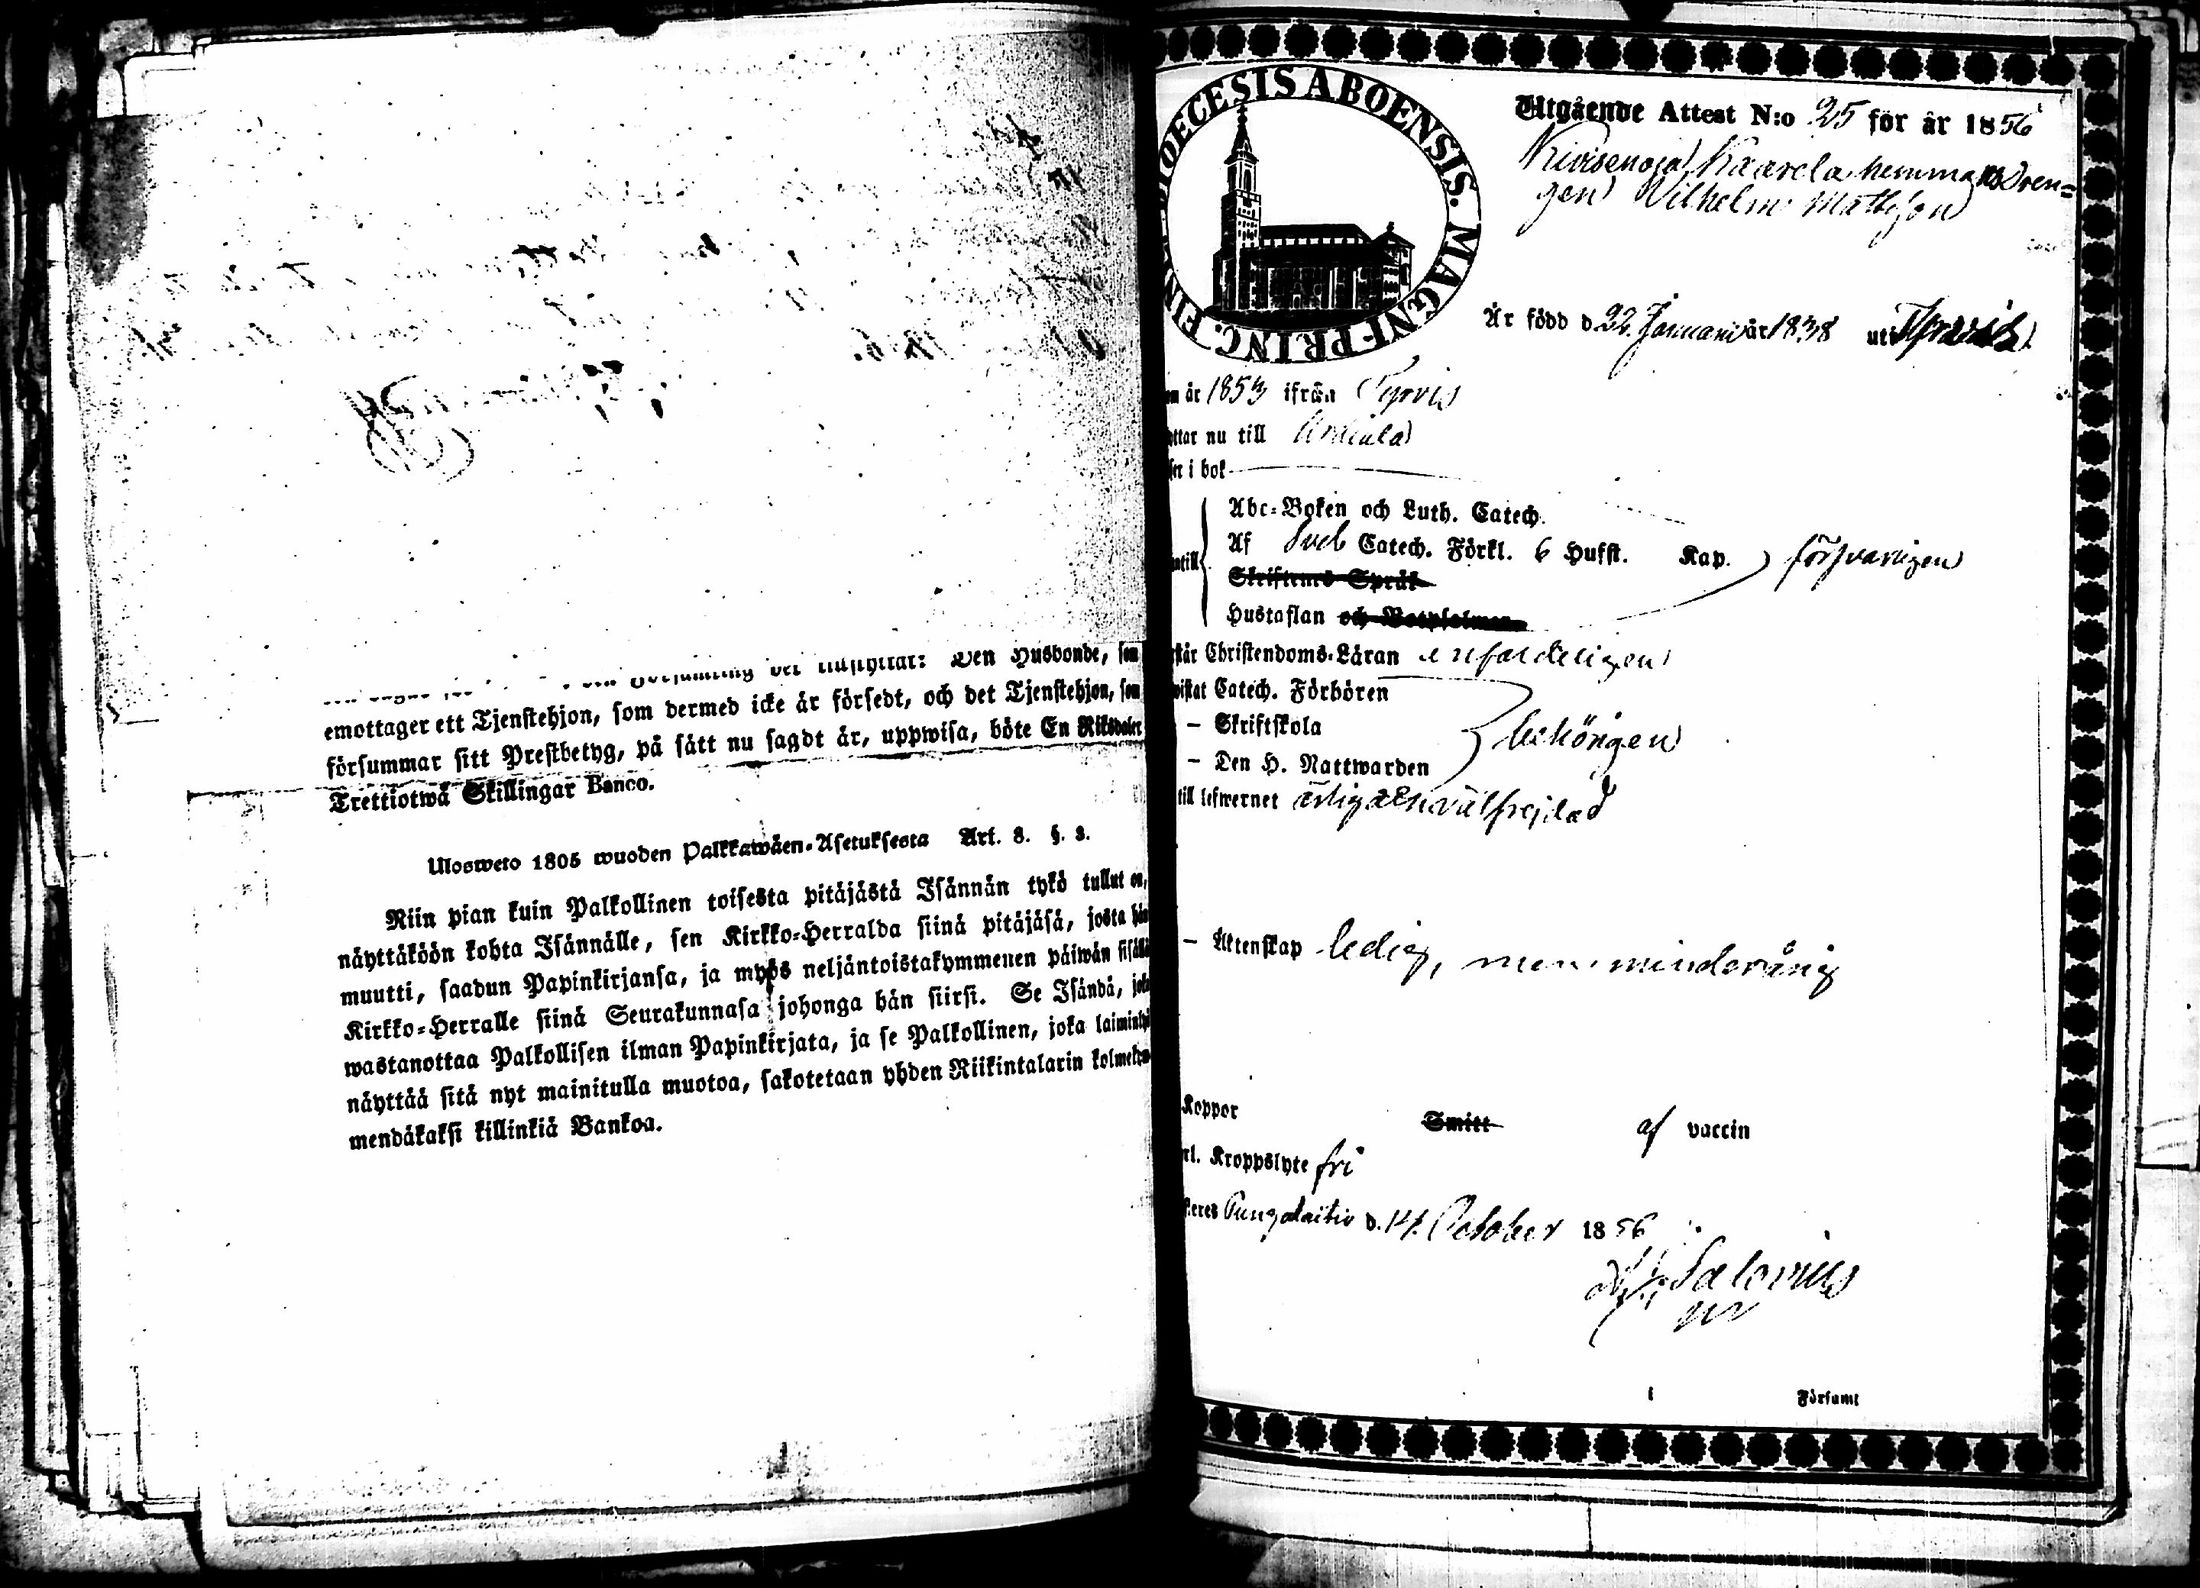 Den Husbonde, som
emottager ett Tjenstehjon, som dermed icke är försedt, och det Tjenstehjon, som
försummar sitt Prestbetyg, på sätt nu sagdt är, uppwisa, böte En Riksdaler
Trettiotwå Skillingar Banco.
Ulosweto 1805 wuoden Palkkawäen-Asetuksesta Art. 8. §. 3.
Niin pian kuin Palkollinen toisesta pitäjästä Isännän tykö tullut on,
näyttäköön kohta Isännälle, sen Kirkko-Herralda siinä pitäjäsä, josta hän
muutti, saadun Papinkirjansa, ja myös neljäntoistakymmenen päiwän sisällä
Kirkko-Herralle siinä Seurakunnasa johonga hän siirsi. Se Isändä, joka
wastanottaa Palkollisen ilman Papinkirjata, ja se Palkollinen, joka laiminlyö
näyttää sitä nyt mainitulla muotoa, sakotetaan yhden Riikintalarin kolmekym-
mendäkaksi killinkiä Bankoa.
DIOECESIS ABOENSIS. MAGNI PRINC. FIN
Utgående Attest N:o 25 för år 1856
Kivisenoja Kaarela hemmans Dren=
gen Wilhelm Mattsson
Är född d. 22 Januari år 1838 uti Tyrvis
år 1853 ifrån Tyrvis
nu till Urdiala
i bok
Abc-Boken och Luth. Catech.
Af Sveb Catech. Förkl. 6 Hufst. Kap. försvarligen
Skriftens Språk
Hustaflan och Botpsalmer
Christendoms-Läran enfaldeligen
Catech. Förhören
– Skriftskola behörigen
– Den H. Nattwarden
till lefwernet ärlig och välfrejdad
– Äktenskap ledig, men minderårig
Koppor Smitt af vaccin
Kroppslyte fri
Pungalaitio d. 14 October 1856
Salovius
Församl